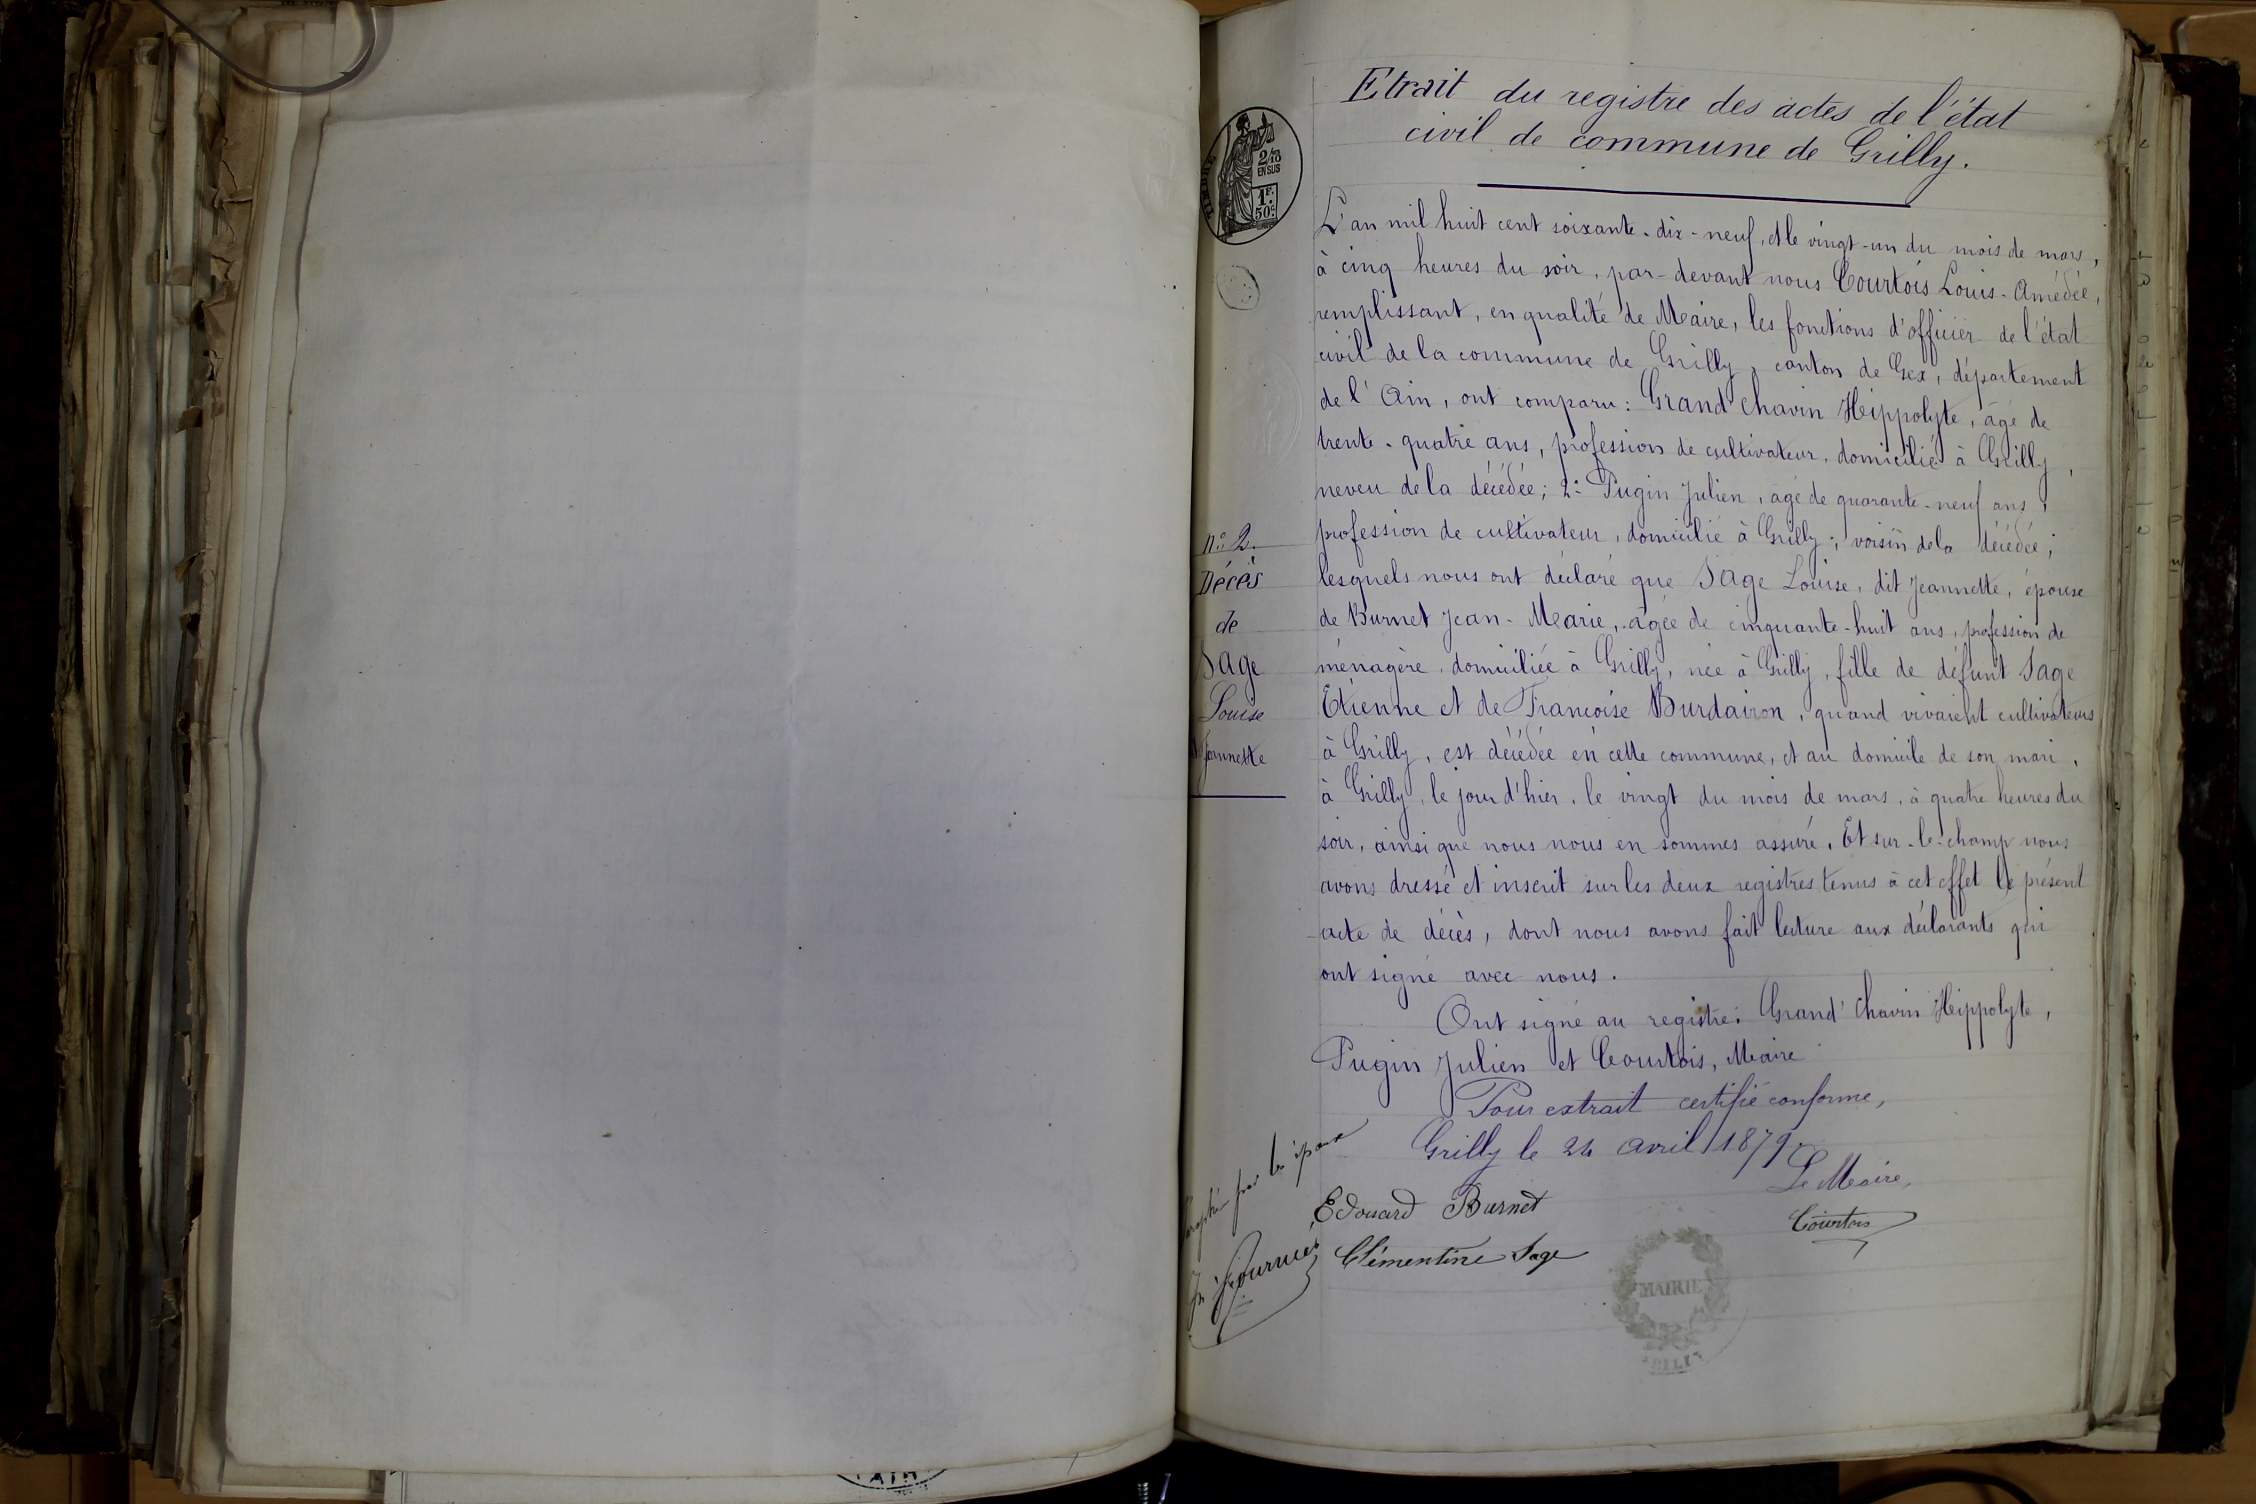 Etrait du registre des actes de l'état
civil de commune de Grilly.
TIMBRE
2/10
EN SUS
1F.
50c
L'an mil huit cent soixante-dix-neuf, et le vingt-un du mois de mars,
à cinq heures du soir, par-devant nous Courtois Louis-Amédée,
remplissant, en qualité de Maire, les fonctions d'officier de l'état
civil de la commune de Grilly, canton de Gex, département
de l'Ain, ont comparu: Grand'Chavin Hippolyte, âgé de
trente-quatre ans, profession de cultivateur, domicilié à Grilly,
neveu de la décédée; 2° Pugin Julien, âgé de quarante-neuf ans,
profession de cultivateur, domicilié à Grilly; voisin de la décédée;
lesquels nous ont déclaré que Sage Louise, dit Jeannette, épouse
de Burnet Jean-Marie, âgée de cinquante-huit ans, profession de
ménagère, domiciliée à Grilly, née à Grilly, fille de défunt Sage
Etienne et de Françoise Burdairon, quand vivaient cultivateurs
à Grilly, est décédée en cette commune, et au domicile de son mari,
à Grilly, le jour d'hier, le vingt du mois de mars, à quatre heures du
soir, ainsi que nous nous en sommes assuré. Et sur-le-champ nous
avons dressé et inscrit sur les deux registres tenus à cet effet le présent
acte de décès, dont nous avons fait lecture aux déclarants qui
ont signé avec nous.
Ont signé au registre: Grand'Chavin Hippolyte,
Pugin Julien et Courtois, Maire
Pour extrait certifié conforme,
Grilly le 24 avril 1879
Le Maire,
Courtois
N° 2.
Décès
de
Sage
Louise
dit Jeannette
par les époux
Edouard Burnet
Clémentine Sage
Fournier
MAIRIE
AIN